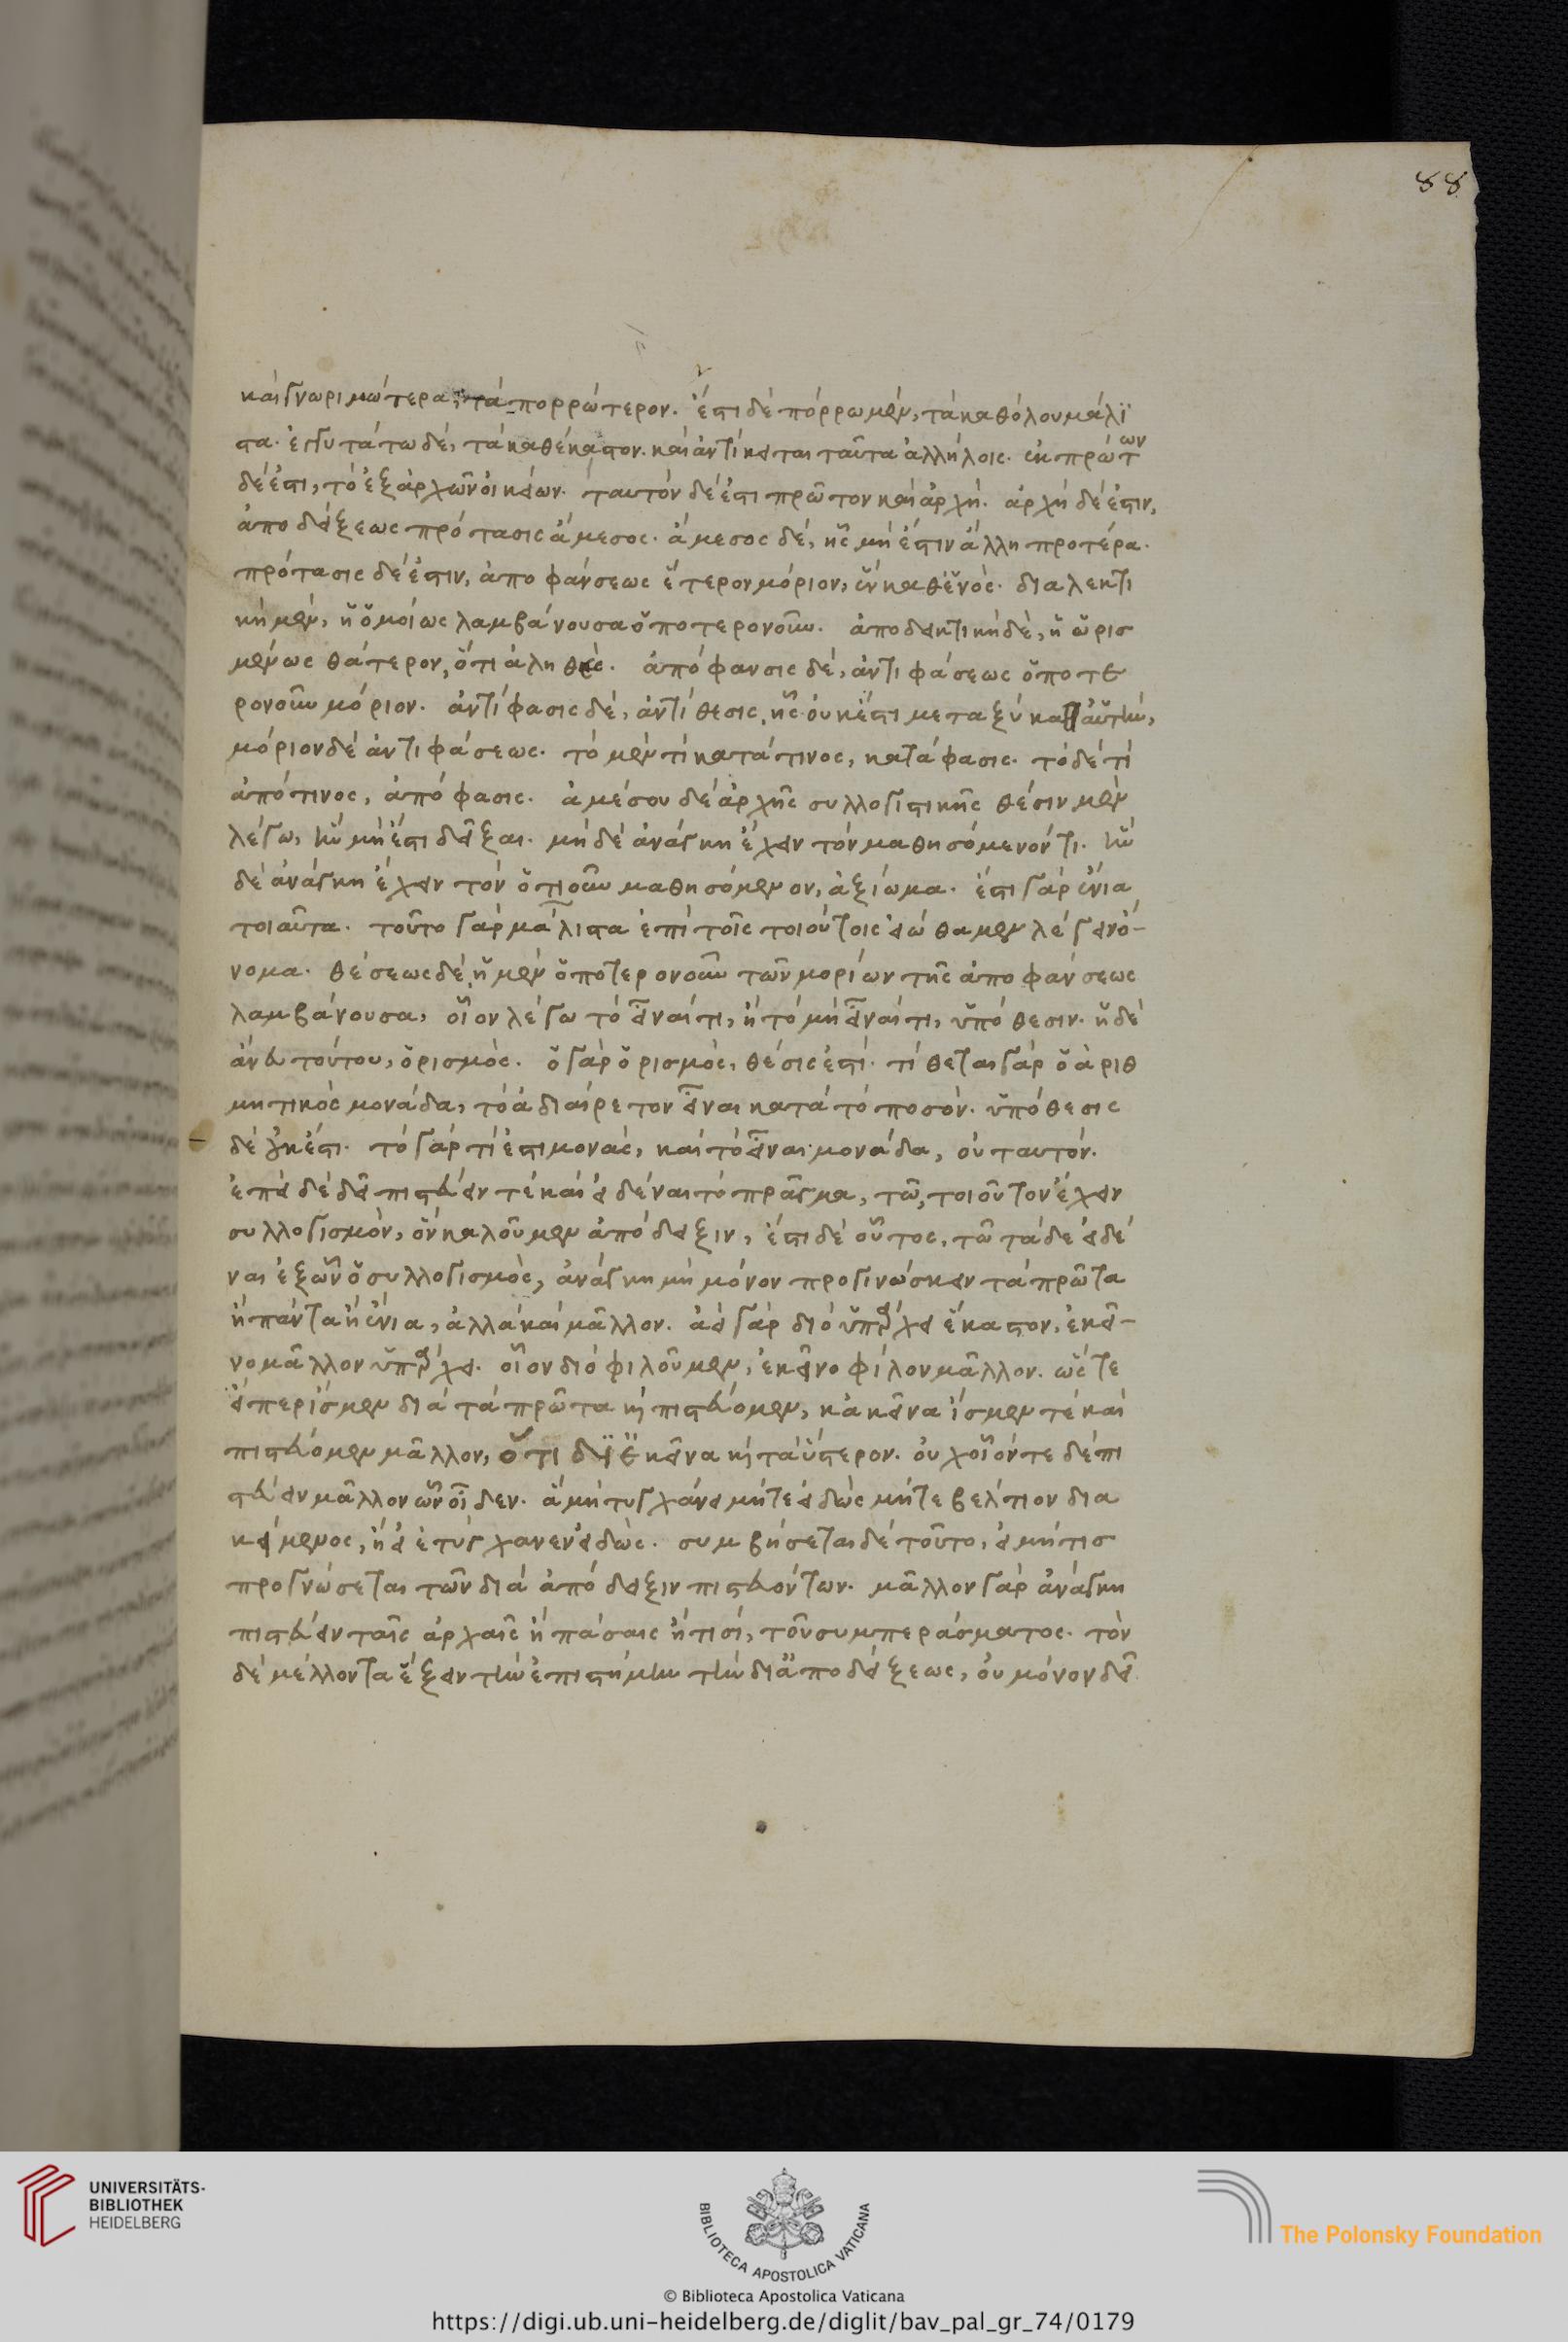 88
καὶ γνωριμώτερα, τὰ πορρώτερον. ἔστι δὲ πόρρω μὲν, τὰ καθόλου μάλι
στα. ἐγγυτάτω δὲ, τὰ καθέκαστον. καὶ ἀντίκειται ταῦτα ἀλλήλοις. ἐκ πρώτων
δέ ἐστι, τὸ ἐξ ἀρχῶν οἰκείων. ταυτὸν δέ ἐστι πρῶτον καὶ ἀρχή. ἀρχὴ δέ ἐστιν,
ἀποδείξεως πρότασις ἄμεσος. ἄμεσος δὲ, ἧς μὴ ἔστιν ἄλλη προτέρα.
πρότασις δέ ἐστιν, ἀποφάνσεως ἕτερον μόριον, ἓν καθ ἑνός. διαλεκτι
κὴ μὲν, ἡ ὁμοίως λαμβάνουσα ὁποτερονοῦν. ἀποδεικτικὴ δὲ, ἡ ὡρισ
μένως θάτερον, ὅτι ἀληθές. ἀπόφανσις δὲ, ἀντιφάσεως ὁποτε
ρονοῦν μόριον. ἀντίφασις δὲ, ἀντίθεσις, ἧς οὐκ ἔστι μεταξὺ καθ αὑτήν,
μόριον δὲ ἀντιφάσεως. τὸ μὲν τὶ κατά τινος, κατάφασις. τὸ δέ τι
ἀπό τινος, ἀπόφασις. ἀμέσου δὲ ἀρχῆς συλλογιστικῆς θέσιν μὲν
λέγω, ἣν μὴ ἔστι δεῖξαι. μὴ δὲ ἀνάγκη ἔχειν τὸν μαθησόμενόν τι. ἣν
δὲ ἀνάγκη ἔχειν τὸν ὁτιοῦν μαθησόμενον, ἀξίωμα. ἔστι γὰρ ἔνια
τοιαῦτα. τοῦτο γὰρ μάλιστα ἐπὶ τοῖς τοιούτοις εἰώθαμεν λέγειν ὄ-
νομα. θέσεως δὲ, ἡ μὲν ὁποτερονοῦν τῶν μορίων τῆς ἀποφάνσεως
λαμβάνουσα, οἷον λέγω τὸ εἶναί τι, ἢ τὸ μὴ εἶναί τι, ὑπόθεσιν. ἡ δὲ
ἄνευ τούτου, ὁρισμός. ὁ γὰρ ὁρισμὸς, θέσις ἐστί. τίθεται γὰρ ὁ ἀριθ
μητικὸς μονάδα, τὸ ἀδιαίρετον εἶναι κατὰ τὸ ποσόν. ὑπόθεσις
δὲ οὐκ ἔστι. τὸ γὰρ τί ἐστι μονὰς, καὶ τὸ εἶναι μονάδα, οὐ ταυτόν.
ἐπεὶ δὲ δεῖ πιστεύειν τὲ καὶ εἰδέναι τὸ πρᾶγμα, τῶ, τοιοῦτον ἔχειν
συλλογισμὸν, ὃν καλοῦμεν ἀπόδειξιν, ἔστι δὲ οὗτος, τῶ τάδε εἰδέ
ναι ἐξ ὧν ὁ συλλογισμὸς, ἀνάγκη μὴ μόνον προγινώσκειν τὰ πρῶτα
ἢ πάντα ἢ ἔνια, ἀλλὰ καὶ μᾶλλον. ἀεὶ γὰρ διὸ ὑπάρχει ἕκαστον, ἐκεῖ-
νο μᾶλλον ὑπάρχει. οἷον διὸ φιλοῦμεν, ἐκεῖνο φίλον μᾶλλον. ὥστε
εἴπερ ἴσμεν διὰ τὰ πρῶτα καὶ πιστεύομεν, κἀκεῖνα ἴσμεν τὲ καὶ
πιστεύομεν μᾶλλον, ὅτι δι ἐκεῖνα καὶ τὰ ὕστερον. οὐχ οἷόν τε δὲ πι
στεύειν μᾶλλον ὧν οἶδεν. ἃ μὴ τυγχάνει μήτε εἰδὼς μήτε βέλτιον δια
κείμενος, ἢ εἰ ἐτύγχανεν εἰδώς. συμβήσεται δὲ τοῦτο, εἰ μήτις
προγνώσεται τῶν διὰ ἀπόδειξιν πιστευόντων. μᾶλλον γὰρ ἀνάγκη
πιστεύειν ταῖς ἀρχαῖς ἢ πάσαις ἢ τισὶ, τοῦ συμπεράσματος. τὸν
δὲ μέλλοντα ἕξειν τὴν ἐπιστήμην τὴν δι ἀποδείξεως, οὐ μόνον δεῖ
UNIVERSITÄTS-
BIBLIOTHEK
HEIDELBERG
BIBLIOTECA APOSTOLICA VATICANA
The Polonsky Foundation
© Biblioteca Apostolica Vaticana
https://digi.ub.uni-heidelberg.de/diglit/bav_pal_gr_74/0179